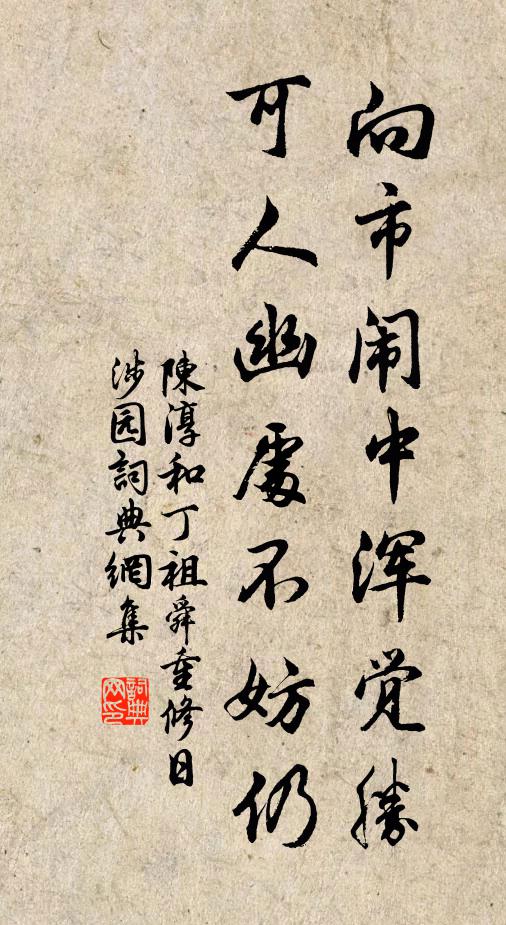 向市闹中浑觉胜
可人幽處不妨仍
陳淳和丁祖舜重修日
涉园詞典網集
詞典网印